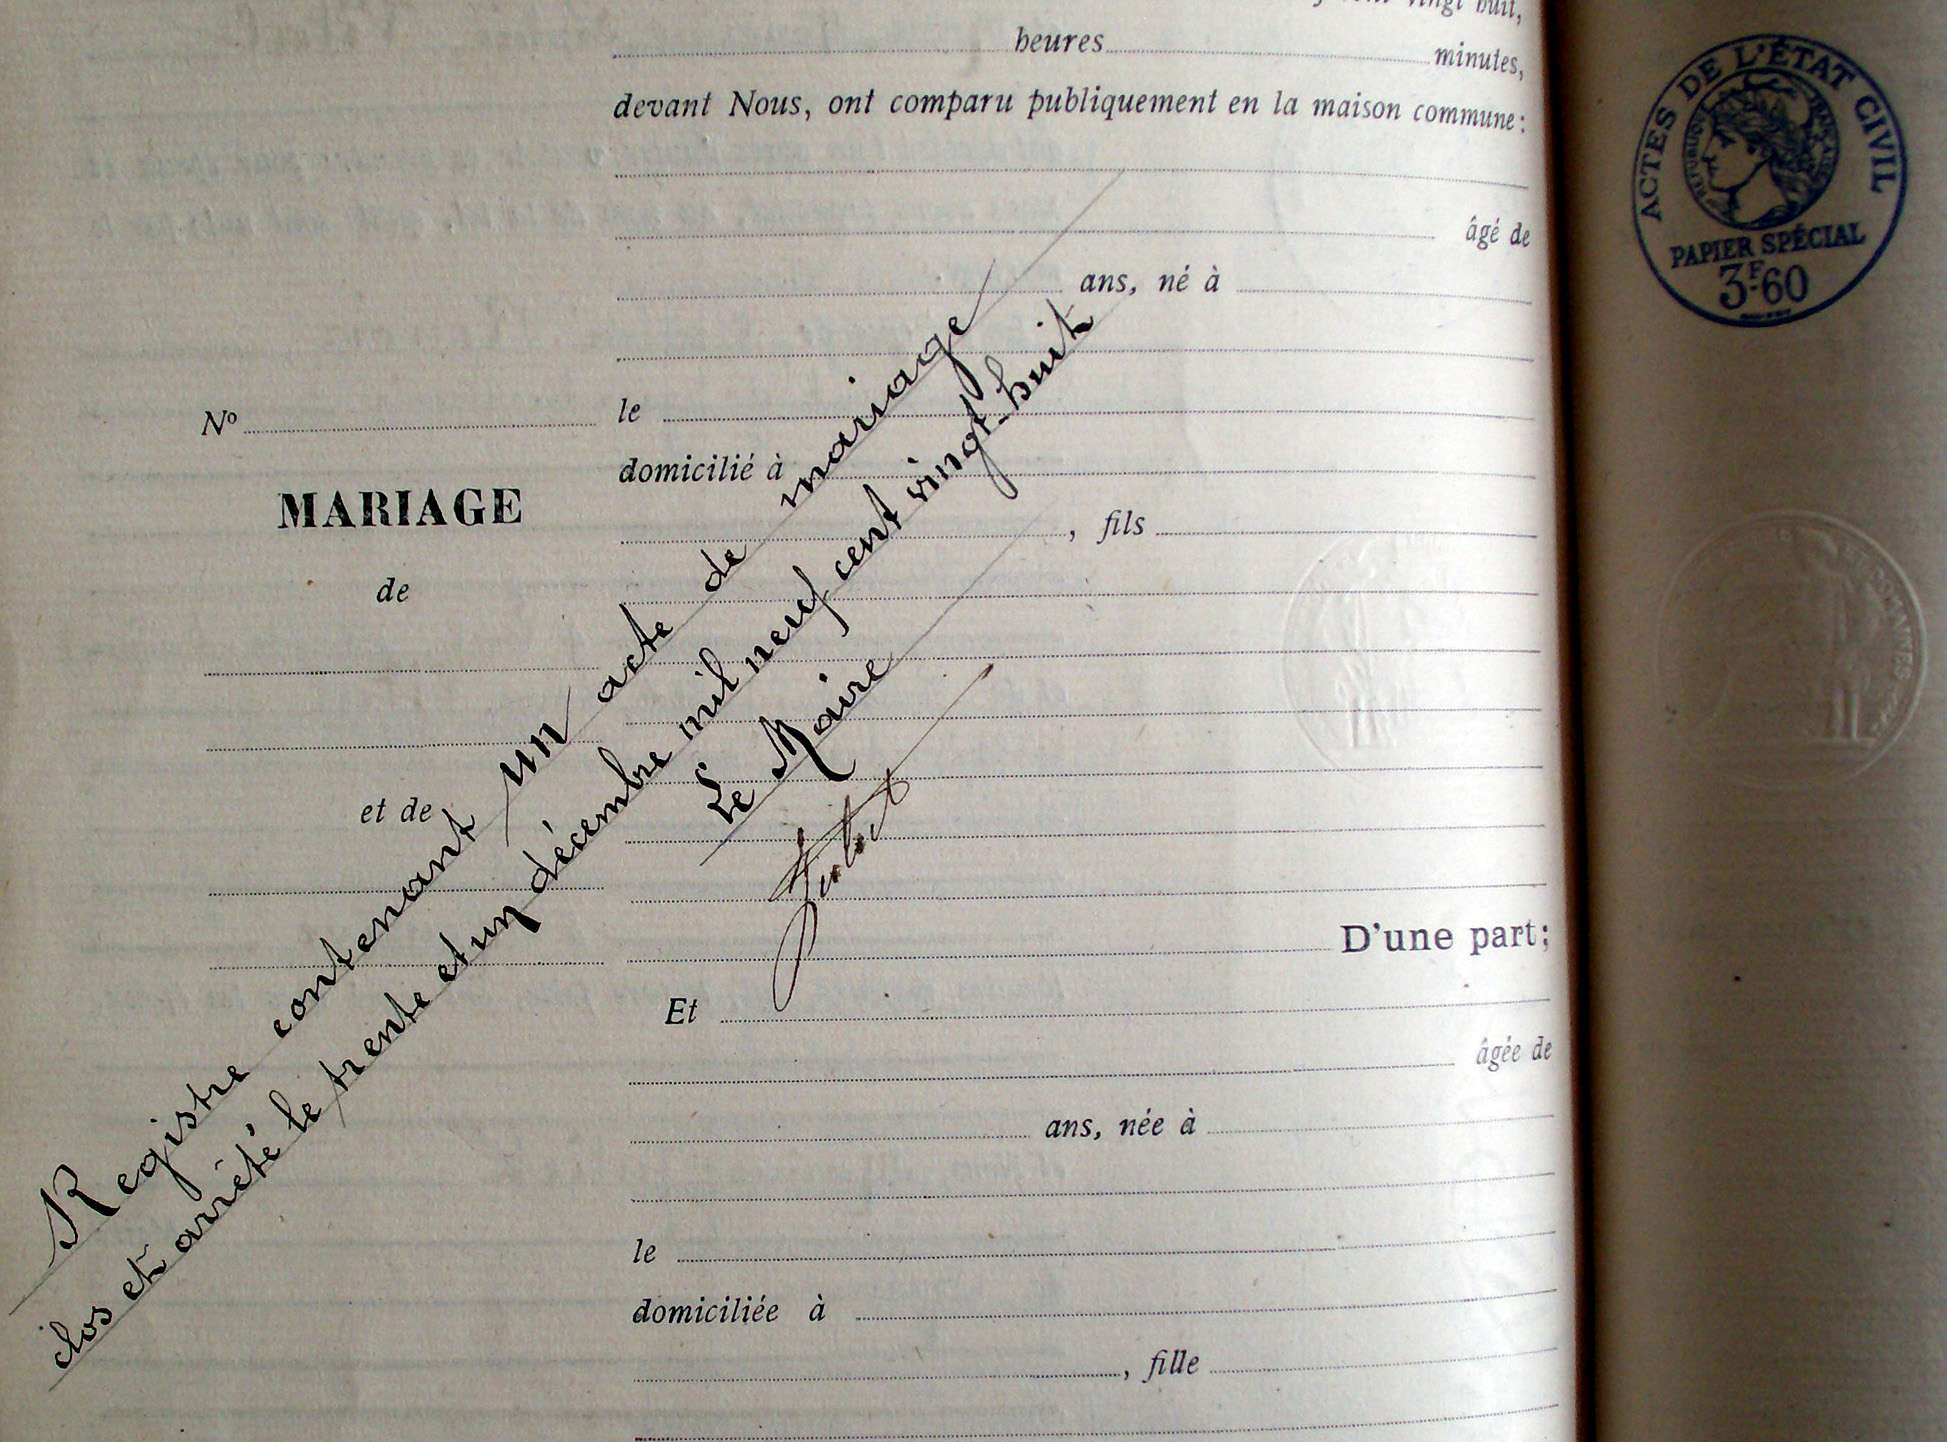 vingt huit,
heures minutes,
devant Nous, ont comparu publiquement en la maison commune:
âgé de
ans, né à
No le
domicilié à
MARIAGE
, fils
de
et de
D'une part;
Et
âgée de
ans, née à
le
domiciliée à
, fille
Registre contenant un acte de mariage
clos et arrêté le trente et un décembre mil neuf cent vingt-huit
Le Maire
ACTES DE L'ÉTAT CIVIL
RÉPUBLIQUE FRANÇAISE
PAPIER SPÉCIAL
3F60